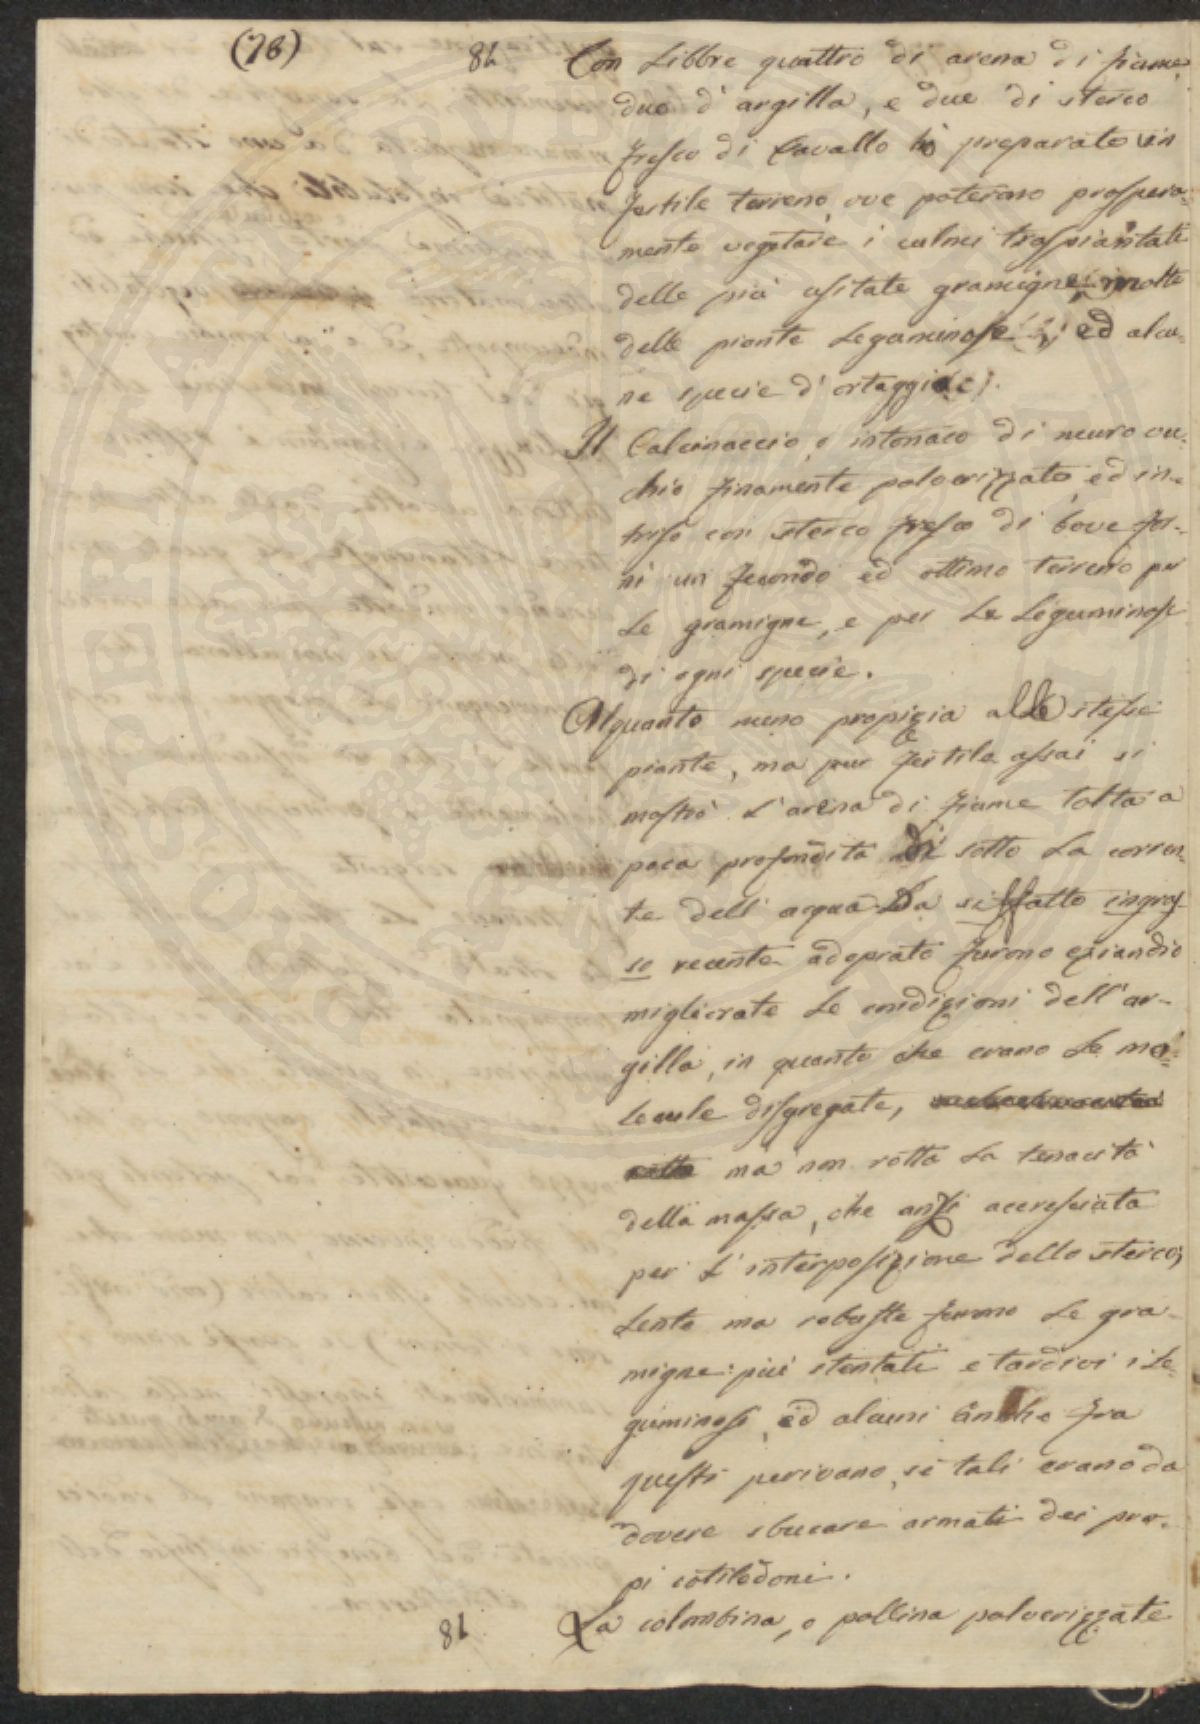 (78)
81 Con Libbre quattro di arena di fiume
due d'argilla, e due di sterco
fresco di Cavallo hò preparato un
fertile terreno, ove poterono prospera-
mente vegetare i culmi traspiantati
delle più usitate gramigne, molte
delle piante Leguminose, ed alcu-
ne specie d'ortaggi.
Il Calcinaccio, o intonaco di muro vec-
chio finamente polverizzato, ed in-
triso con sterco fresco di bove for-
nì un fecondo ed ottimo terreno per
Le gramigne, e per Le Leguminose
di ogni specie.
Alquanto meno propizia alle stesse
piante, ma pur fertile assai si
mostrò L'arena di fiume tolta a
poca profondità di sotto La corren-
te dell'acqua. Da siffatto ingras-
so recente adoprato furono eziandio
migliorate Le condizioni dell'ar-
gilla, in quanto che erano Le mo-
Lecule disgregate,
ma non rotta La tenacità
della massa, che anzi accresciuta
per L'interposizione dello sterco;
Lente ma robuste furono Le gra-
migne: più stentati e tardivi i Le-
guminosi, ed alcuni anche fra
questi perivano, se tali erano da
dovere sbucare armati dei pro-
pi cotiledoni.
La colombina, o pollina polverizzate
81